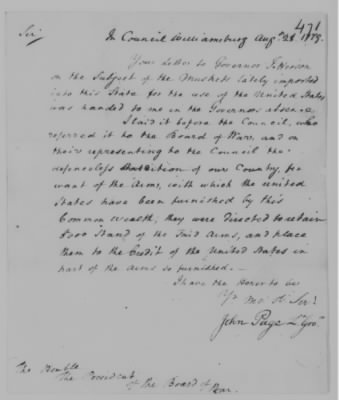 471
Sir
In Council Williamsburg Augst 28 1779.
Your Letter to Governor Jefferson
on the Subject of the Muskets lately imported
into this State for the use of the United States
was handed to me in the Governors absence.
I laid it before the Council, who
referred it to the Board of War, and on
their representing to the Council the
defenceless of our Country, for
want of the Arms, with which the united
States have been furnished by this
Common wealth; they were directed to retain
Stand of the said Arms, and place
them to the Credit of the United States in
part of the arms so furnished.—
I have the Honor to be
Yr mo. Ob Servt
John Page Lt Govr
The Honble
The President
of the Board of War.